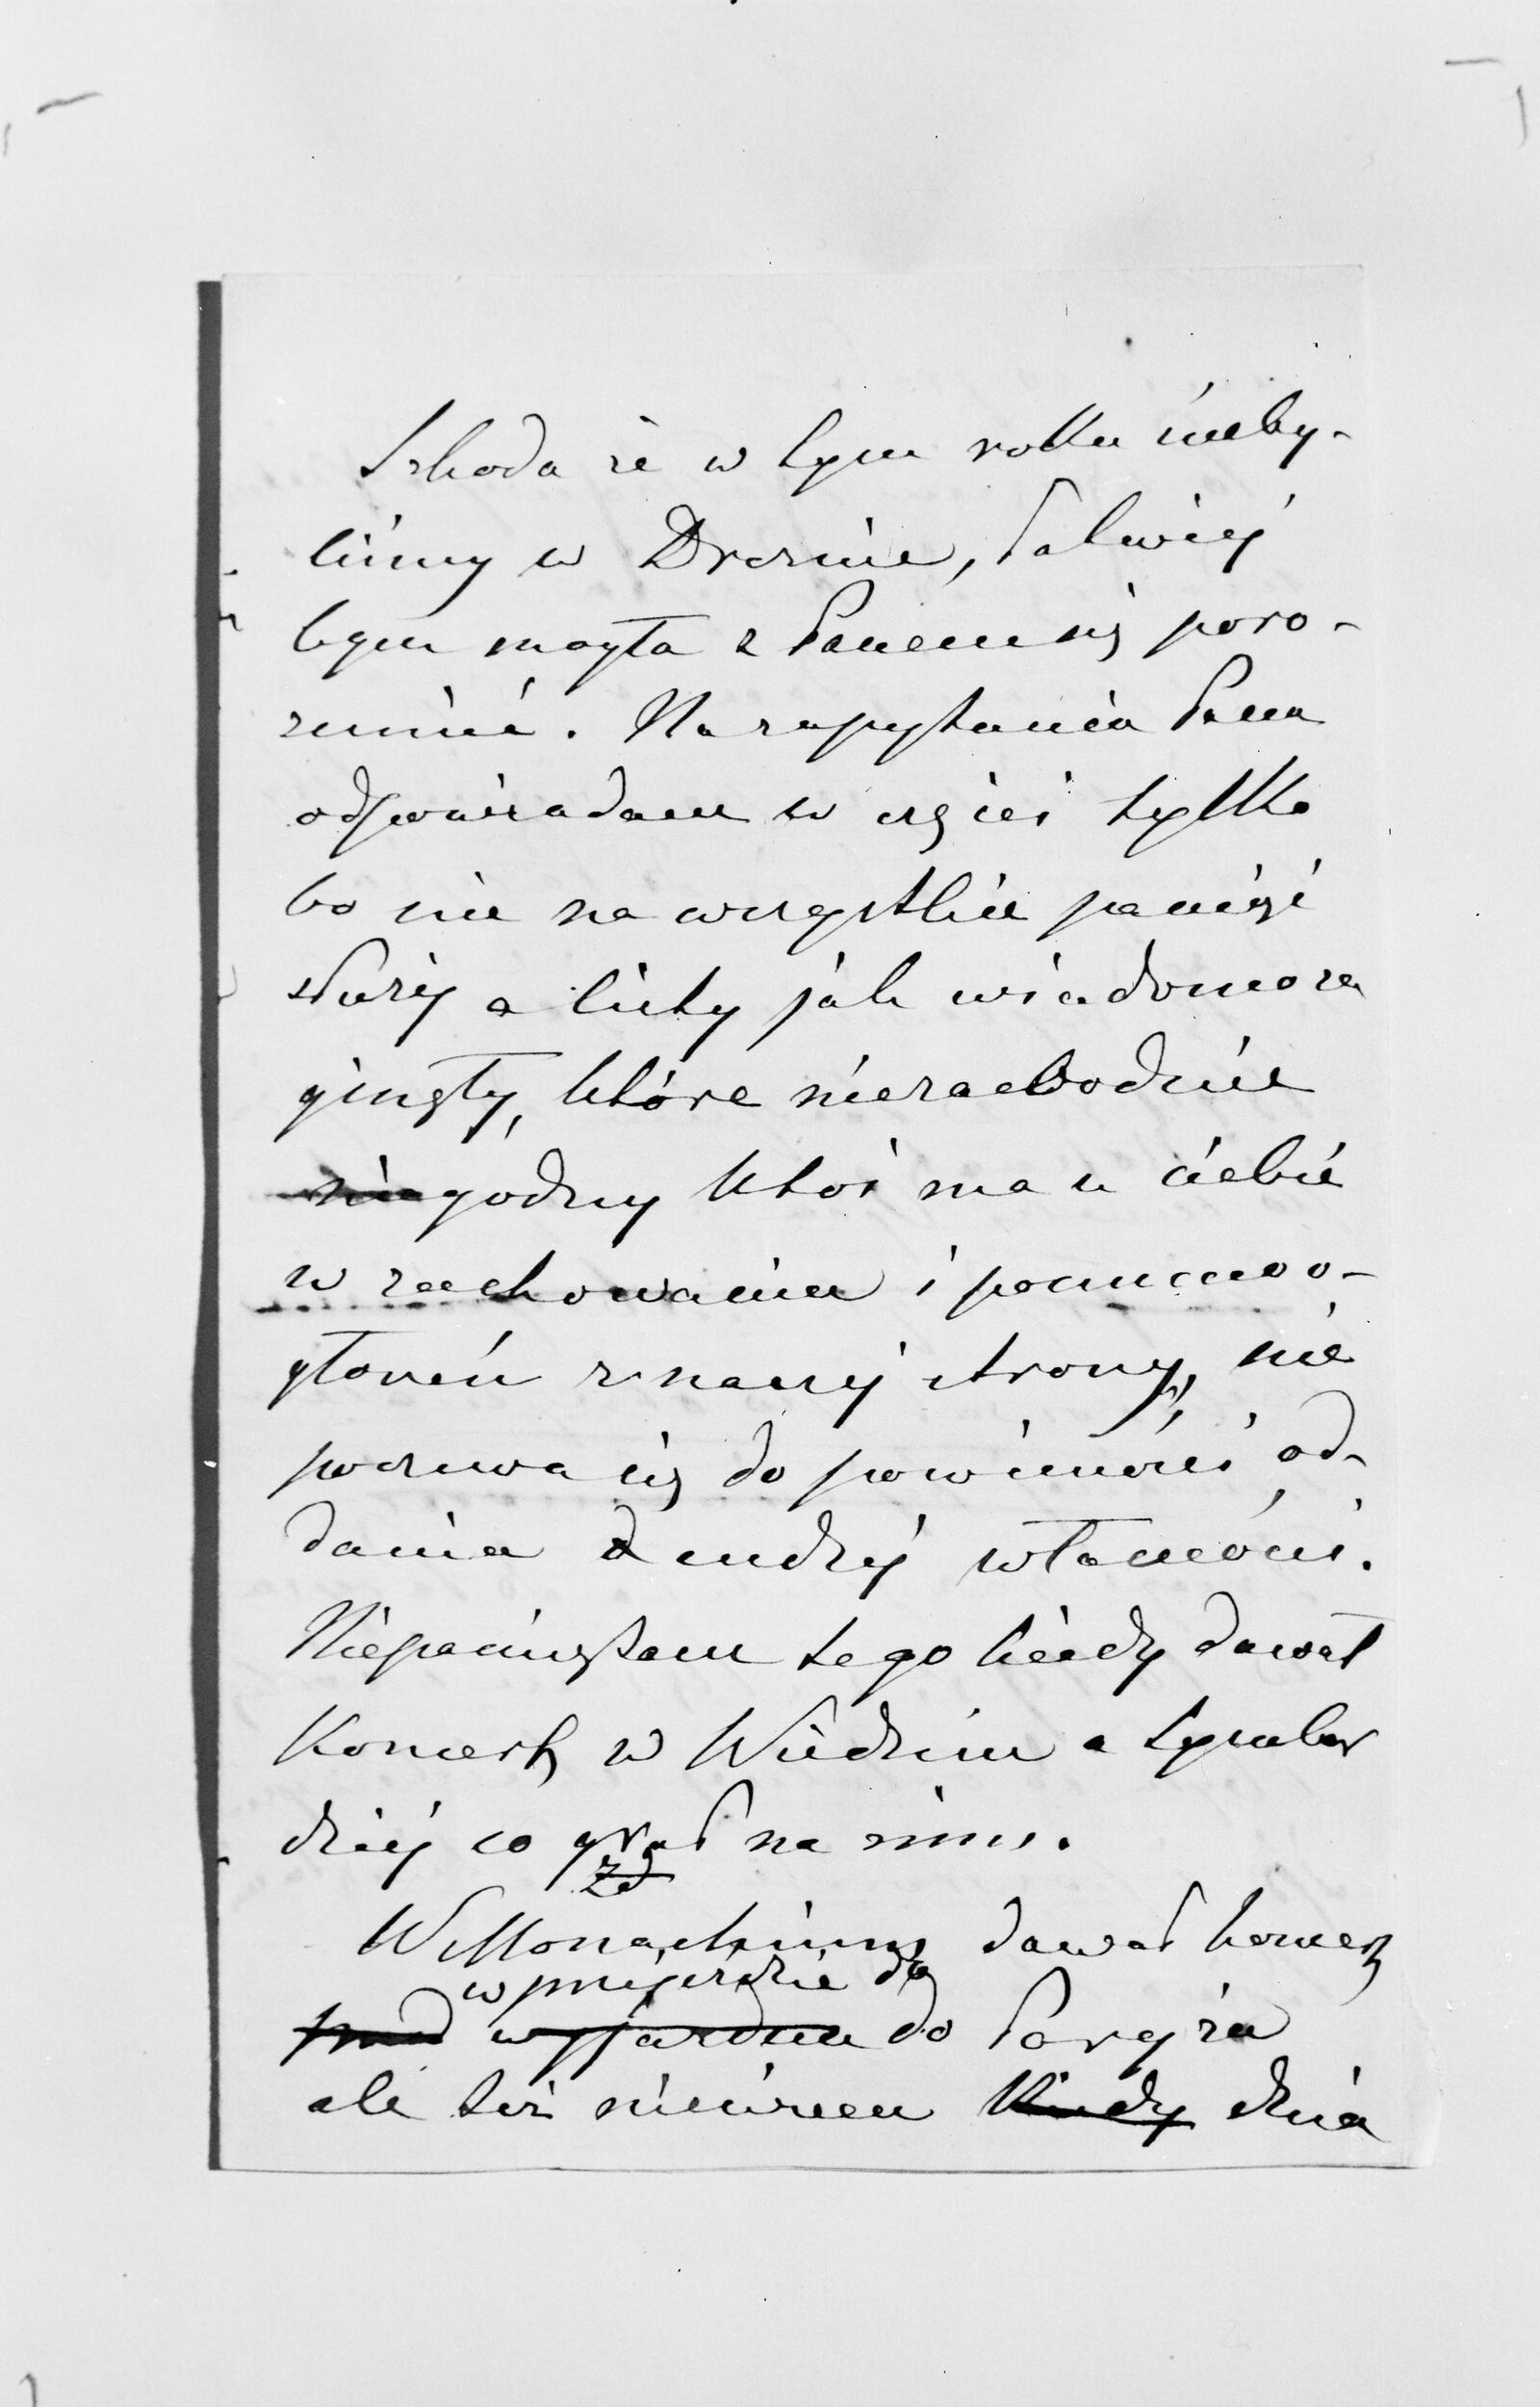 Szkoda że w tym roku nieby-
liśmy w Dreźnie, łatwiej
bym mogła z Panem się poro-
zumieć. Na zapytania Pana
odpowiadam w części tylko
bo nie na wszystkie pamięć
służy a listy jak wiadomo za
ginęły, które niezawodnie
niegodny ktoś ma u siebie
w zachowaniu i pomimo o-
głoszeń z naszej strony, nie
poczuwa się do powinności od-
dania cudzej własności.
Niepamiętam tego kiedy dawał
Koncert w Wiedniu a tymbar
dziej co grał na nim.
W Monachium dawał koncert
w przejeździe do
przed wyjazdem do Paryża
ale też niewiem kiedy dnia